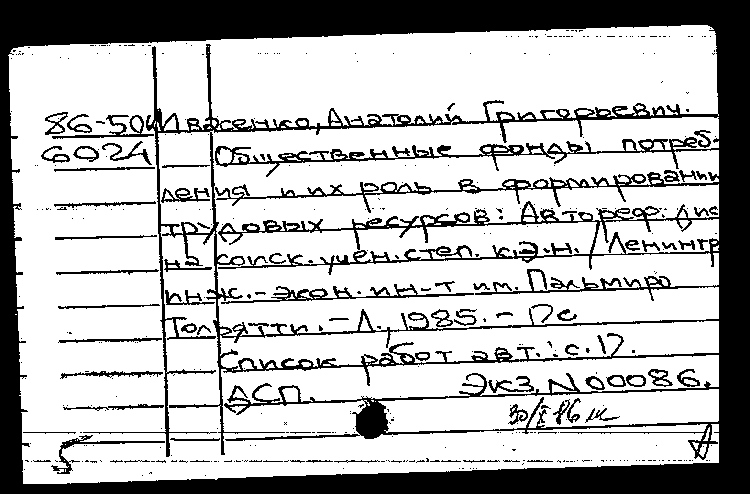 86-504 Ивасенко, Анатолий Григорьевич.
6024 Общественные фонды потреб-
ления и их роль в формировании
трудовых ресурсов: Автореф. дис
на соиск. учен. степ. к.э.н. / Ленингр
инж.-экон. ин-т им. Пальмиро
Тольятти. - Л., 1985. - 17с
Список работ авт.: с. 17.
ДСП. Экз. N 00086.
30/X 86